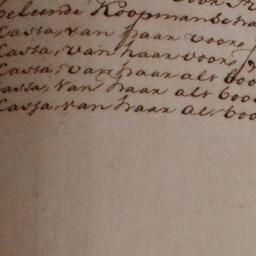 beleende Koopmansch
Cassa, van haar voore
Cassa, van haar voore
Cassa, van haar als boo
Cassa, van haar als boo
Cassa van haar als boo